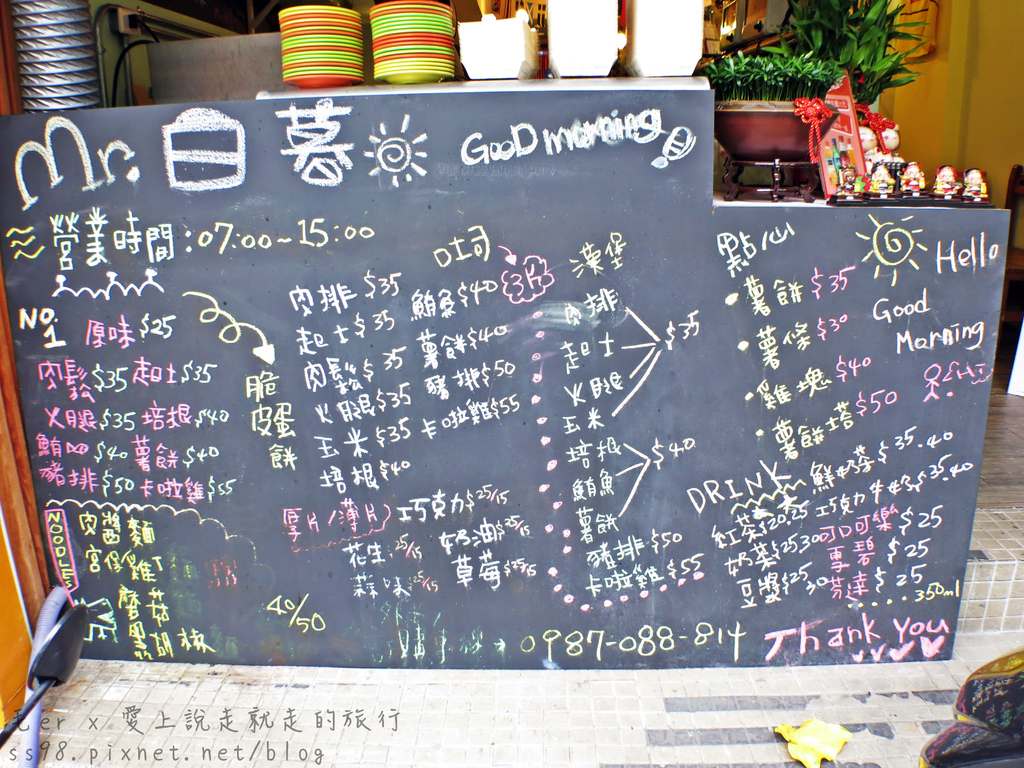 Mr. 日暮 GooD morning
營業時間:07:00~15:00
NO.1
原味$25
肉鬆$35 起士$35
火腿$35 培根$40
鮪魚$40 薯餅$40
豬排$50 卡啦雞$55
脆皮蛋餅
NOODLES
肉醬麵
宮保雞丁
蘑菇
黑胡椒
40/50
吐司
3片
肉排$35 鮪魚$40
起士$35 薯餅$40
肉鬆$35 豬排$50
火腿$35 卡啦雞$55
玉米$35
培根$40
厚片/薄片
巧克力$25/15
花生25/15 奶油$25/15
蒜味25/15 草莓$25/15
漢堡
肉排
起士
火腿
玉米
$35
培根
鮪魚
薯餅
$40
豬排$50
卡啦雞$55
點心
薯餅$35
薯條$30
雞塊$40
薯餅塔$50
Hello
Good
Marning
DRINK
鮮奶茶$35.40
紅茶$20.25 巧克力牛奶$35.40
奶茶$25.30 可口可樂$25
豆漿$25.30 雪碧$25
芬達$25
350ml
0987-088-814
Thank You
毛er x 愛上說走就走的旅行
ss98.pixnet.net/blog